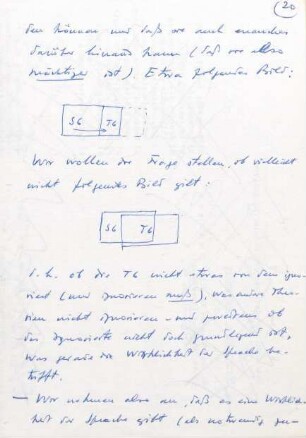 20
den können und daß sie auch manches
darüber hinaus kann (daß sie also
mächtiger ist). Etwa folgendes Bild:
SG TG
Wir wollen die Frage stellen, ob vielleicht
nicht folgendes Bild gilt:
SG TG
d.h. ob die TG nicht etwas von dem igno-
riert (und ignorieren muß), was
nicht ignorieren – und zwar ob
das Ignorierte nicht doch grundlegend ist,
was gerade die Wirklichkeit der Sprache be-
trifft.
— Wir nehmen also an, daß es eine Wirklich-
keit der Sprache gibt (als notwendig